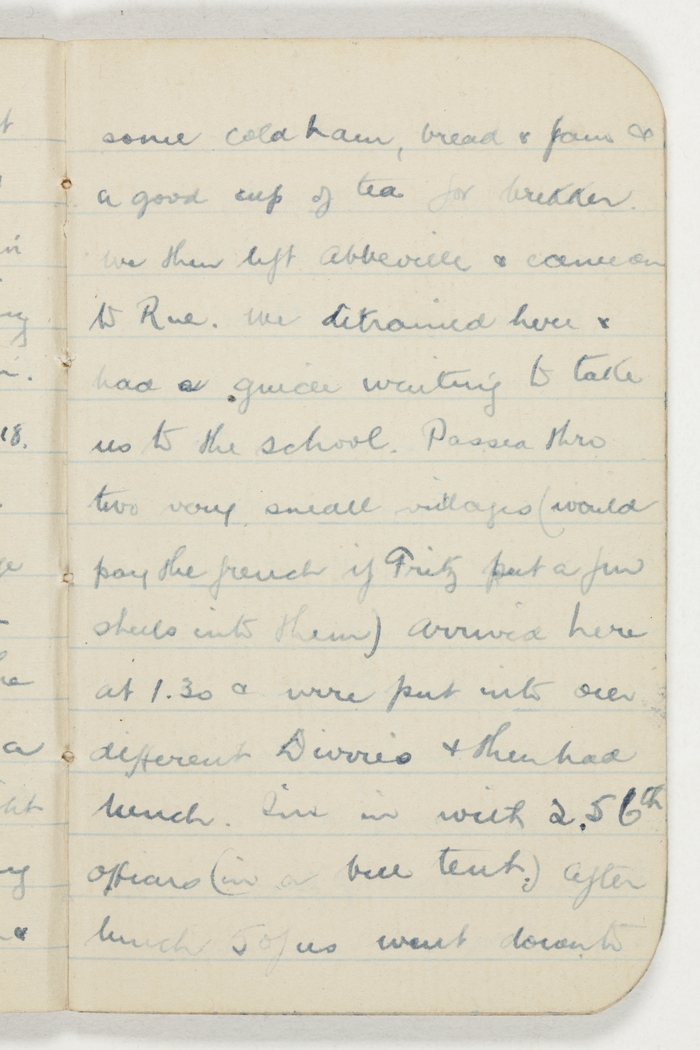 some cold ham, bread & jam &
a good cup of tea for brekker.
We then left Abbeville & came on
to Rue. We detrained here &
had a guide waiting to take
us to the school. Passed thro
two very small villages (would
pay the french if Fritz put a few
shells into them) Arrived here
at 1.30 & were put into our
different Divvies & then had
lunch. I'm in with 2. 56th
officers (in a bell tent.) After
lunch 5 of us went down to